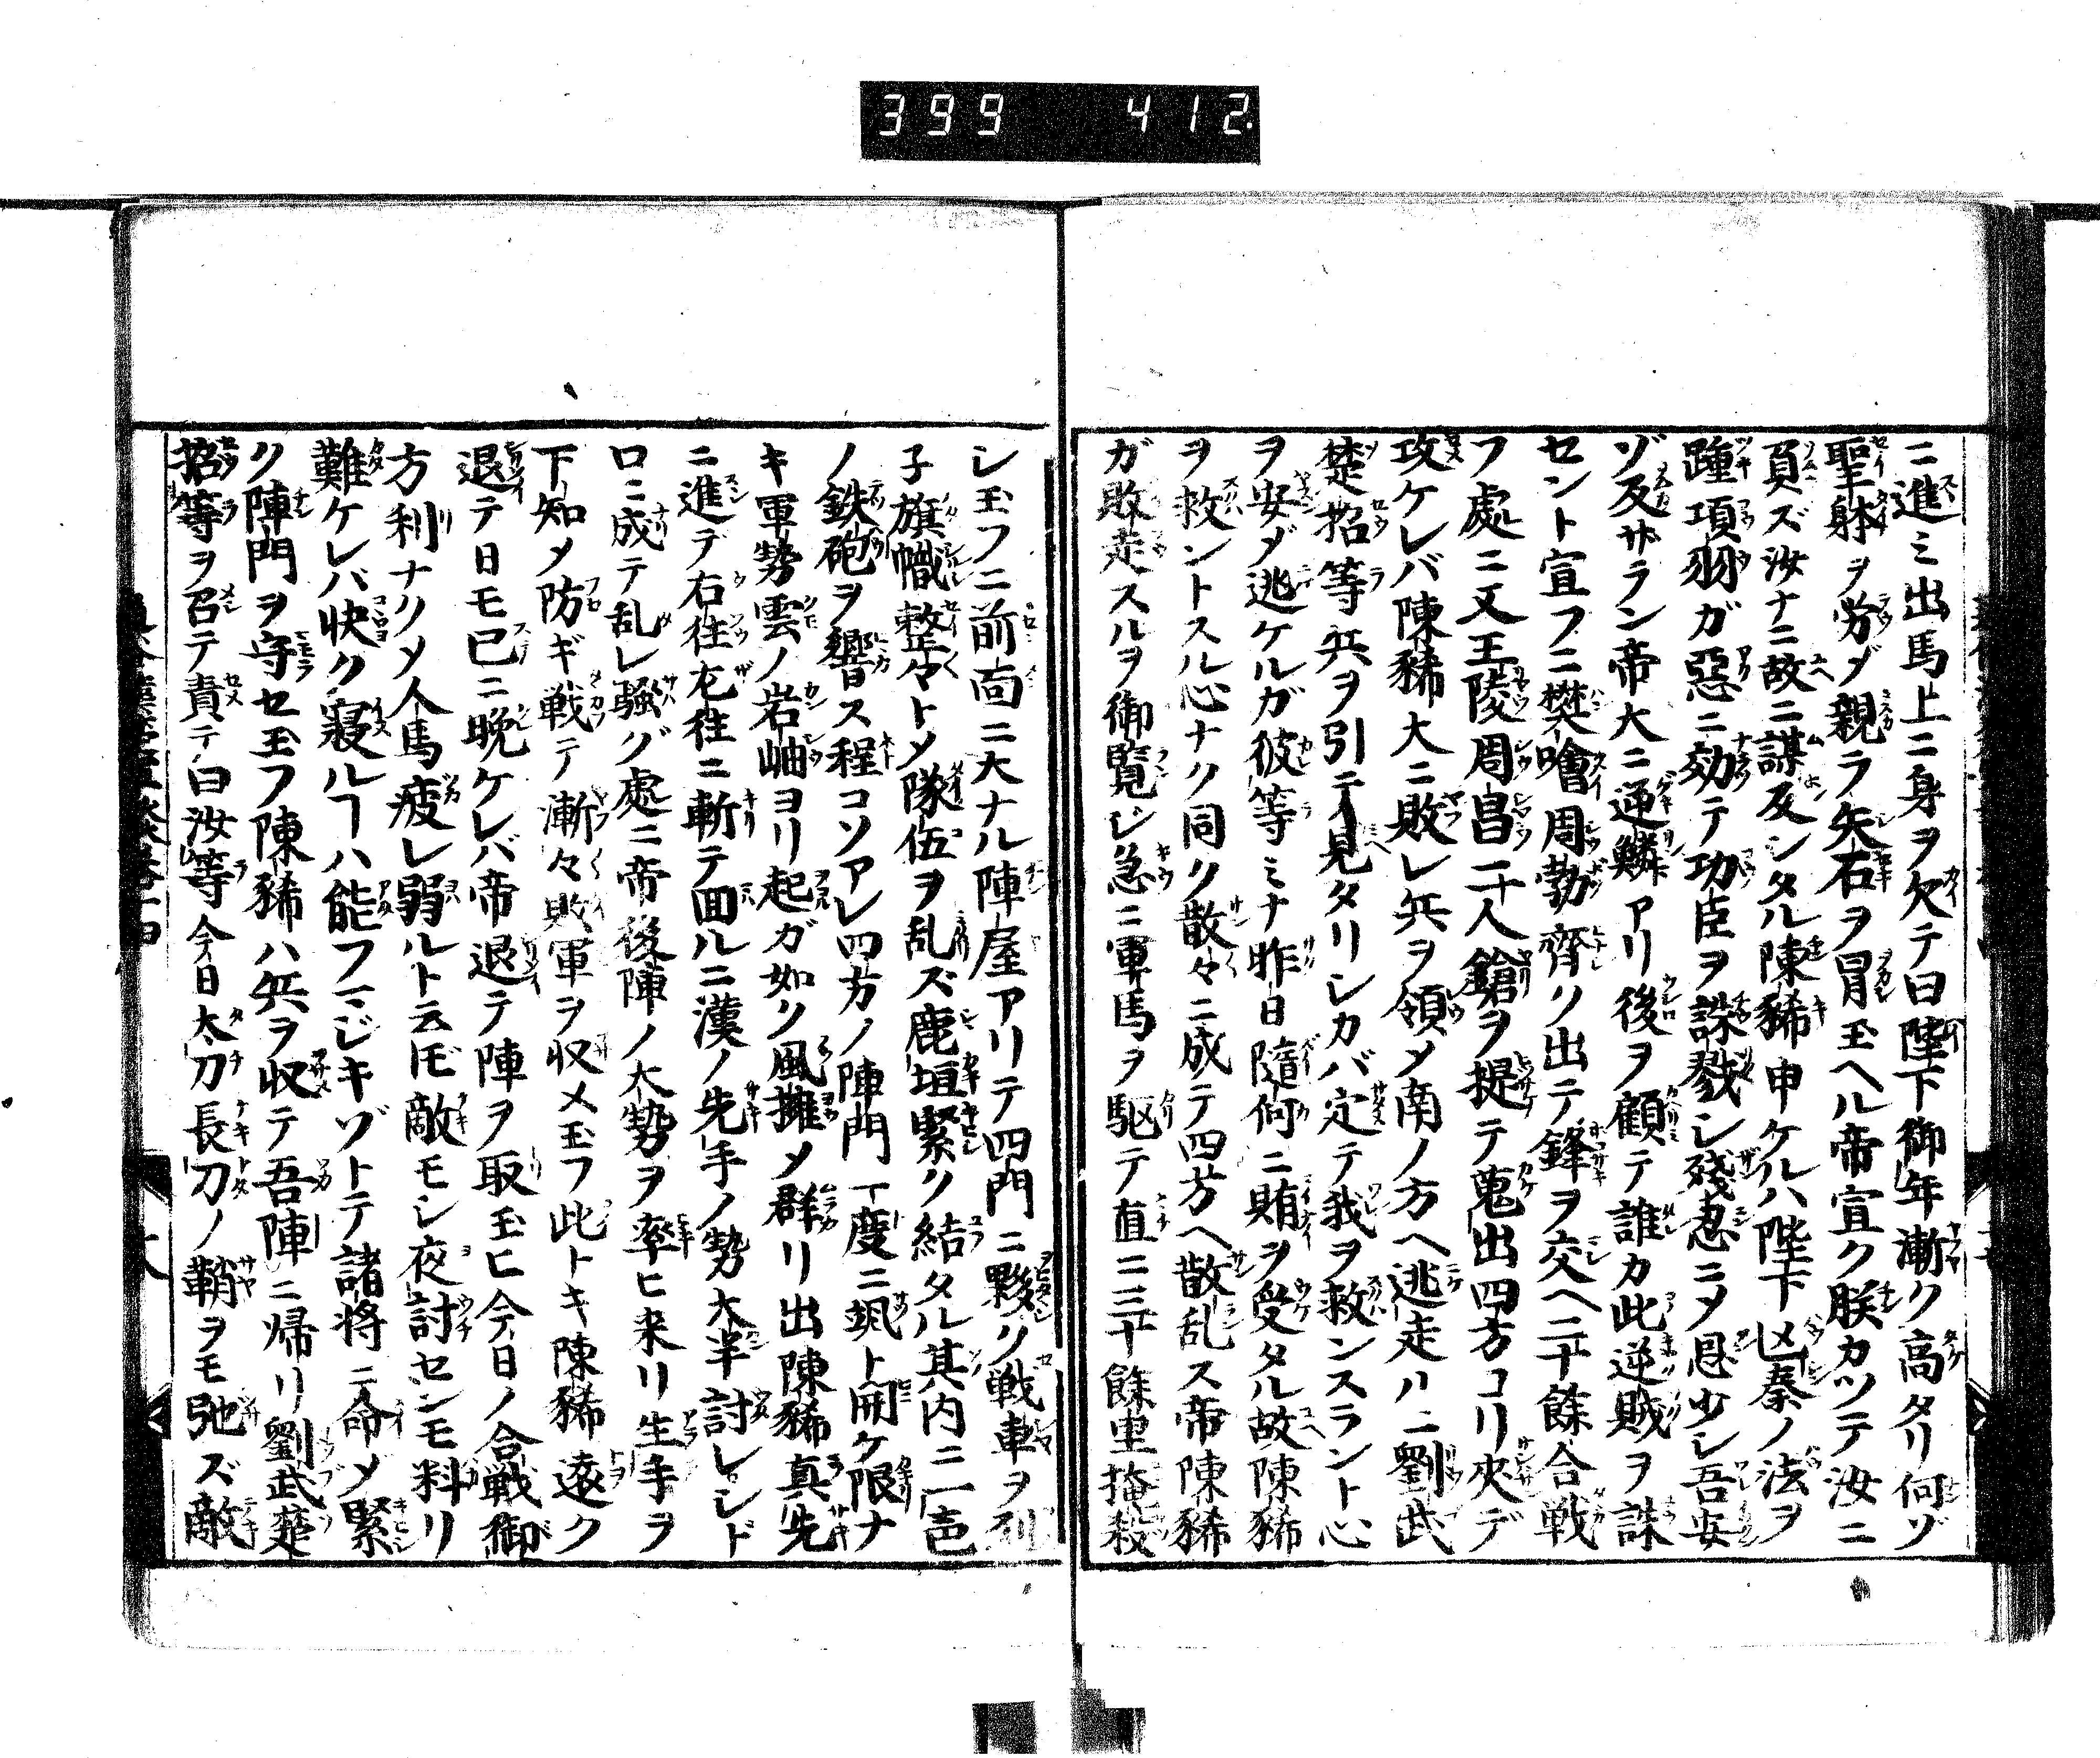 399 412
ニ進ミ出馬上ニ身ヲ欠テ曰陛下御年漸ク高タリ何ゾ
聖躰ヲ労ダ親ラ矢石ヲ冒玉ヘル帝宣ク朕カツテ汝ニ
負ズ汝ナニ故ニ謀反シタル陳豨申ケルハ陛下凶秦ノ法ヲ
踵項羽ガ惡ニ効テ功臣ヲ誅戮シ殘忍ニメ恩少レ吾安
ゾ反サラン帝大ニ逆鱗アリ後ヲ顧テ誰カ此逆賊ヲ誅
セント宣フニ樊噲周勃齊リ出テ鋒ヲ交ヘ二十餘合戦
フ處ニ又王陵周昌二十人鎗ヲ提テ蒐出四方コリ夾デ
攻ケレバ陳豨大ニ敗レ兵ヲ領メ南ノ方ヘ逃走ハニ劉武
楚招等兵ヲ引テ見タリレカバ定テ我ヲ救ンスラント心
ヲ安ダ逃ケルガ彼等ミナ昨日隨何ニ賄ヲ受タル故陳豨
ヲ救ントスル心ナク同ク散々ニ成テ四方ヘ散乱ス帝陳豨
ガ敗走スルヲ御覧ジ急ニ軍馬ヲ駆テ直ニ三十餘里掩殺
レ玉フニ前面ニ大ナル陣屋アリテ四門ニ夥ク戦車ヲ列
子旗幟整々トメ隊伍ヲ乱ズ鹿垣緊ク結タル其内ニ一声
ノ鉄砲ヲ響ス程コソアレ四方ノ陣門一度ニ颯ト開ケ限ナ
キ軍勢雲ノ岩岫ヨリ起ガ如ク風擁メ群リ出陳豨真先
ニ進デ右往左往ニ斬テ回ルニ漢ノ先手ノ勢大半討レシド
ロニ成テ乱レ騒グ處ニ帝後陣ノ大勢ヲ率ヒ来リ生手ヲ
下知メ防ギ戦テ漸々敗軍ヲ収メ玉フ此トキ陳豨遠ク
退テ日モ已ニ晩ケレバ帝退テ陣ヲ取玉ヒ今日ノ合戦御
方利ナクメ人馬疲レ弱ルト云𪜈敵モシ夜討センモ料リ
難ケレバ快ク寢ルヿハ能フマジキゾトテ諸将ニ命メ緊
ク陣門ヲ守セ玉フ陳豨ハ兵ヲ収テ吾陣ニ帰リ劉武楚
招等ヲ召テ責テ曰汝等今日太刀長刀ノ鞘ヲモ弛ズ敵